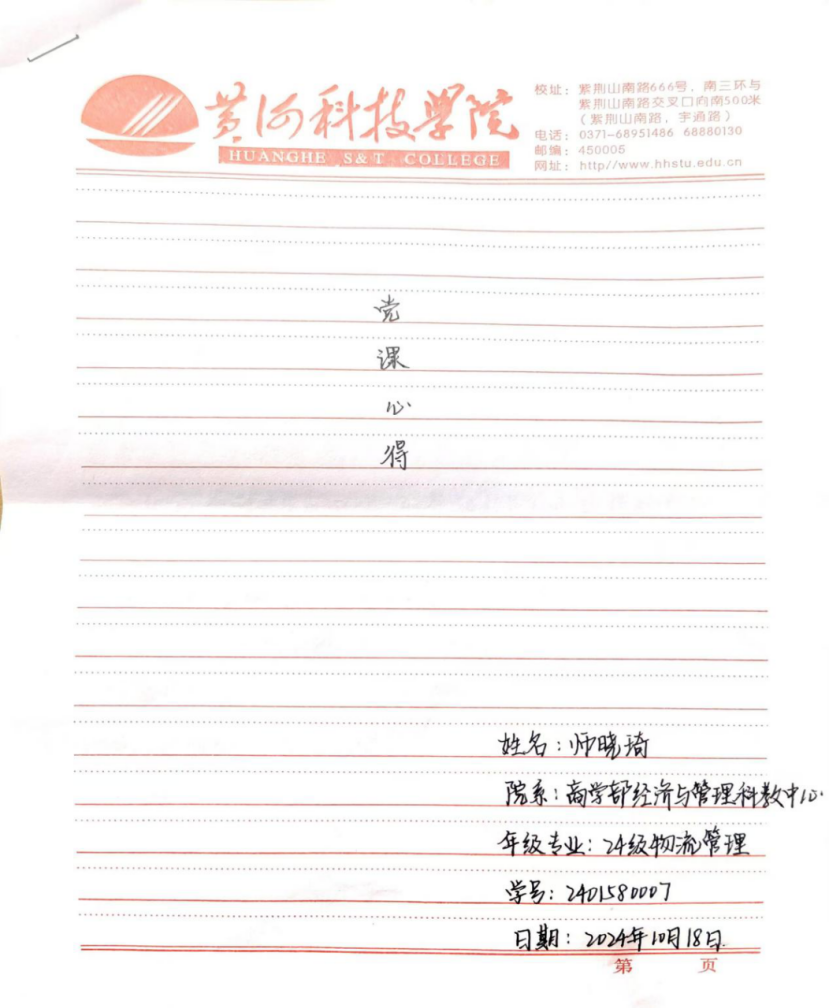 黄河科技学院
HUANGHE S&T COLLEGE
校址：紫荆山南路666号，南三环与
紫荆山南路交叉口向南500米
（紫荆山南路，宇通路）
电话：0371-68951486 68880130
邮编：450005
网址：http//www.hhstu.edu.cn
党
课
心
得
姓名：师晓琦
院系：商学部经济与管理科教中心
年级专业：24级物流管理
学号：2401580007
日期：2024年10月18日
第 页